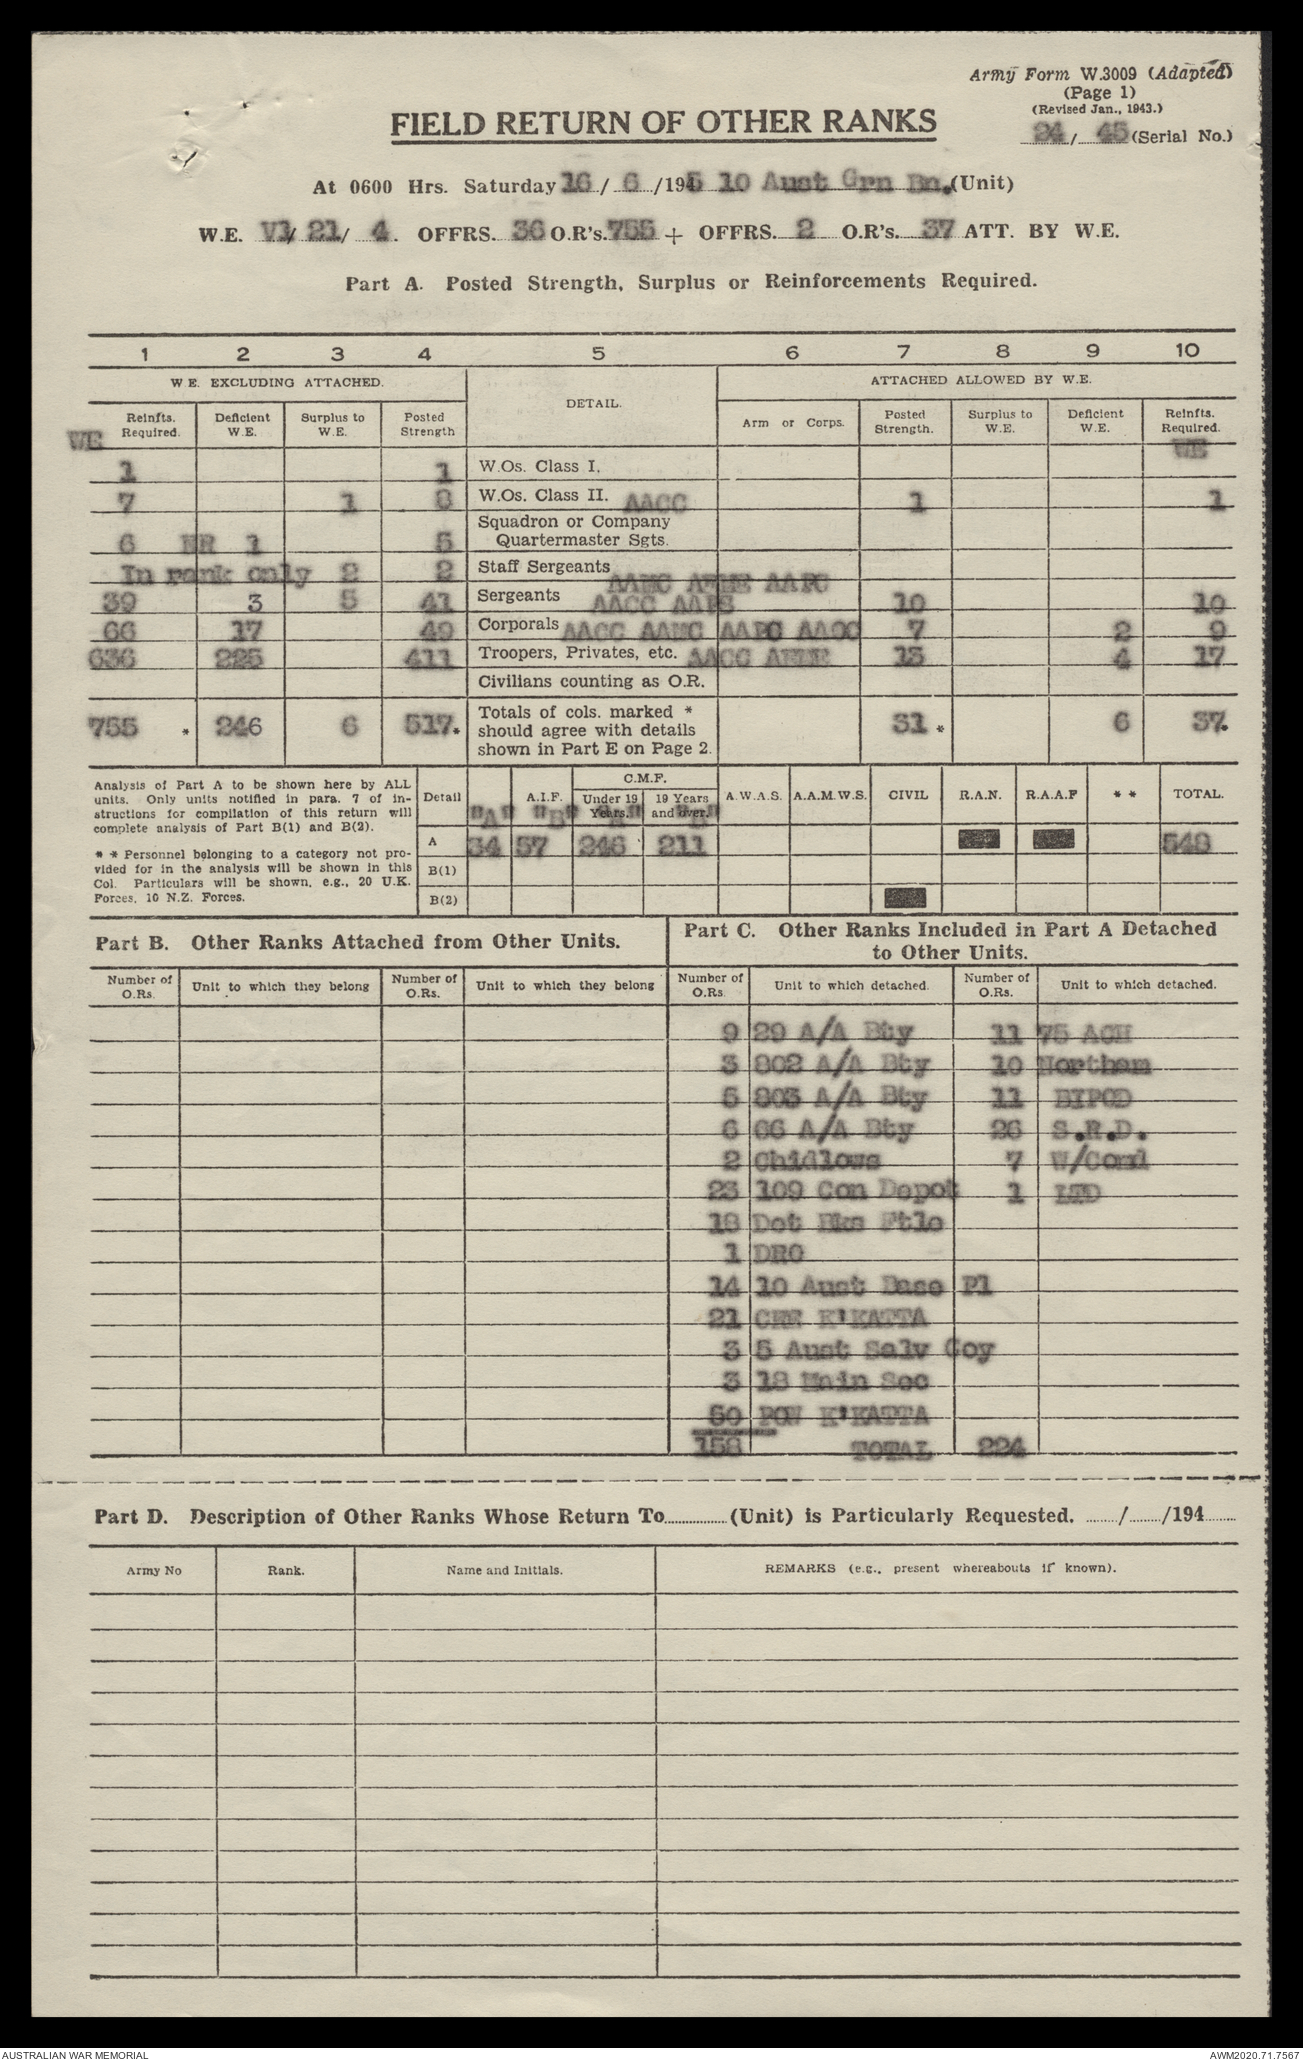 Army Form W.3009 (Adapted)
(Page 1)
(Revised Jan., 1943.)
24/ 45 (Serial No.)
FIELD RETURN OF OTHER RANKS
At 0600 Hrs. Saturday 16/ 6 /1945 10 Aust Grn Bn. (Unit)
W.E. VI/ 21/ 4. OFFRS. 36 O.R's. 755 + OFFRS. 2 O.R's. 37 ATT. BY W.E.
Part A. Posted Strength, Surplus or Reinforcements Required.
1 2 3 4 5 6 7 8 9 10
W E. EXCLUDING ATTACHED. DETAIL. ATTACHED ALLOWED BY W.E.
Reinfts. Required. Deficient W.E. Surplus to W.E. Posted Strength Arm or Corps. Posted Strength. Surplus to W.E. Deficient W.E. Reinfts. Required.
WE WE
1 1 W.Os. Class I.
7 1 8 W.Os. Class II. AACC 1 1
6 HR 1 5 Squadron or Company Quartermaster Sgts.
In rank only 2 2 Staff Sergeants
AAMC AEME AAPC
39 3 5 41 Sergeants AACC AAPS 10 10
66 17 49 Corporals AACC AAMC AAPC AAOC 7 2 9
636 225 411 Troopers, Privates, etc. AACC AEME 13 4 17
Civilians counting as O.R.
755 * 246 6 517* Totals of cols. marked * should agree with details shown in Part E on Page 2. 31 * 6 37.
Analysis of Part A to be shown here by ALL
units. Only units notified in para. 7 of in-
structions for compilation of this return will
complete analysis of Part B(1) and B(2).
* * Personnel belonging to a category not pro-
vided for in the analysis will be shown in this
Col. Particulars will be shown, e.g., 20 U.K.
Forces, 10 N.Z. Forces.
C.M.F.
Detail A.I.F. Under 19 Years. 19 Years and over. A.W.A.S. A.A.M.W.S. CIVIL R.A.N. R.A.A.F * * TOTAL.
"A" "B" "A" "B"
A 34 57 246 211 548
B(1)
B(2)
Part B. Other Ranks Attached from Other Units.
Number of O.Rs. Unit to which they belong Number of O.Rs. Unit to which they belong
Part C. Other Ranks Included in Part A Detached
to Other Units.
Number of O.Rs. Unit to which detached. Number of O.Rs. Unit to which detached.
9 29 A/A Bty 11 75 ACH
3 802 A/A Bty 10 Northam
5 803 A/A Bty 11 BIPOD
6 66 A/A Bty 26 S.R.D.
2 Chidlows 7 W/Coml
23 109 Con Depot 1 LTD
18 Det Bks Ftle
1 DRO
14 10 Aust Base Pl
21 CRE K'KATTA
3 5 Aust Salv Coy
3 18 Main Sec
50 POW K'KATTA
158 TOTAL 224
Part D. Description of Other Ranks Whose Return To............(Unit) is Particularly Requested. ......../......../194........
Army No Rank. Name and Initials. REMARKS (e.g., present whereabouts if known).
AUSTRALIAN WAR MEMORIAL AWM2020.71.7567